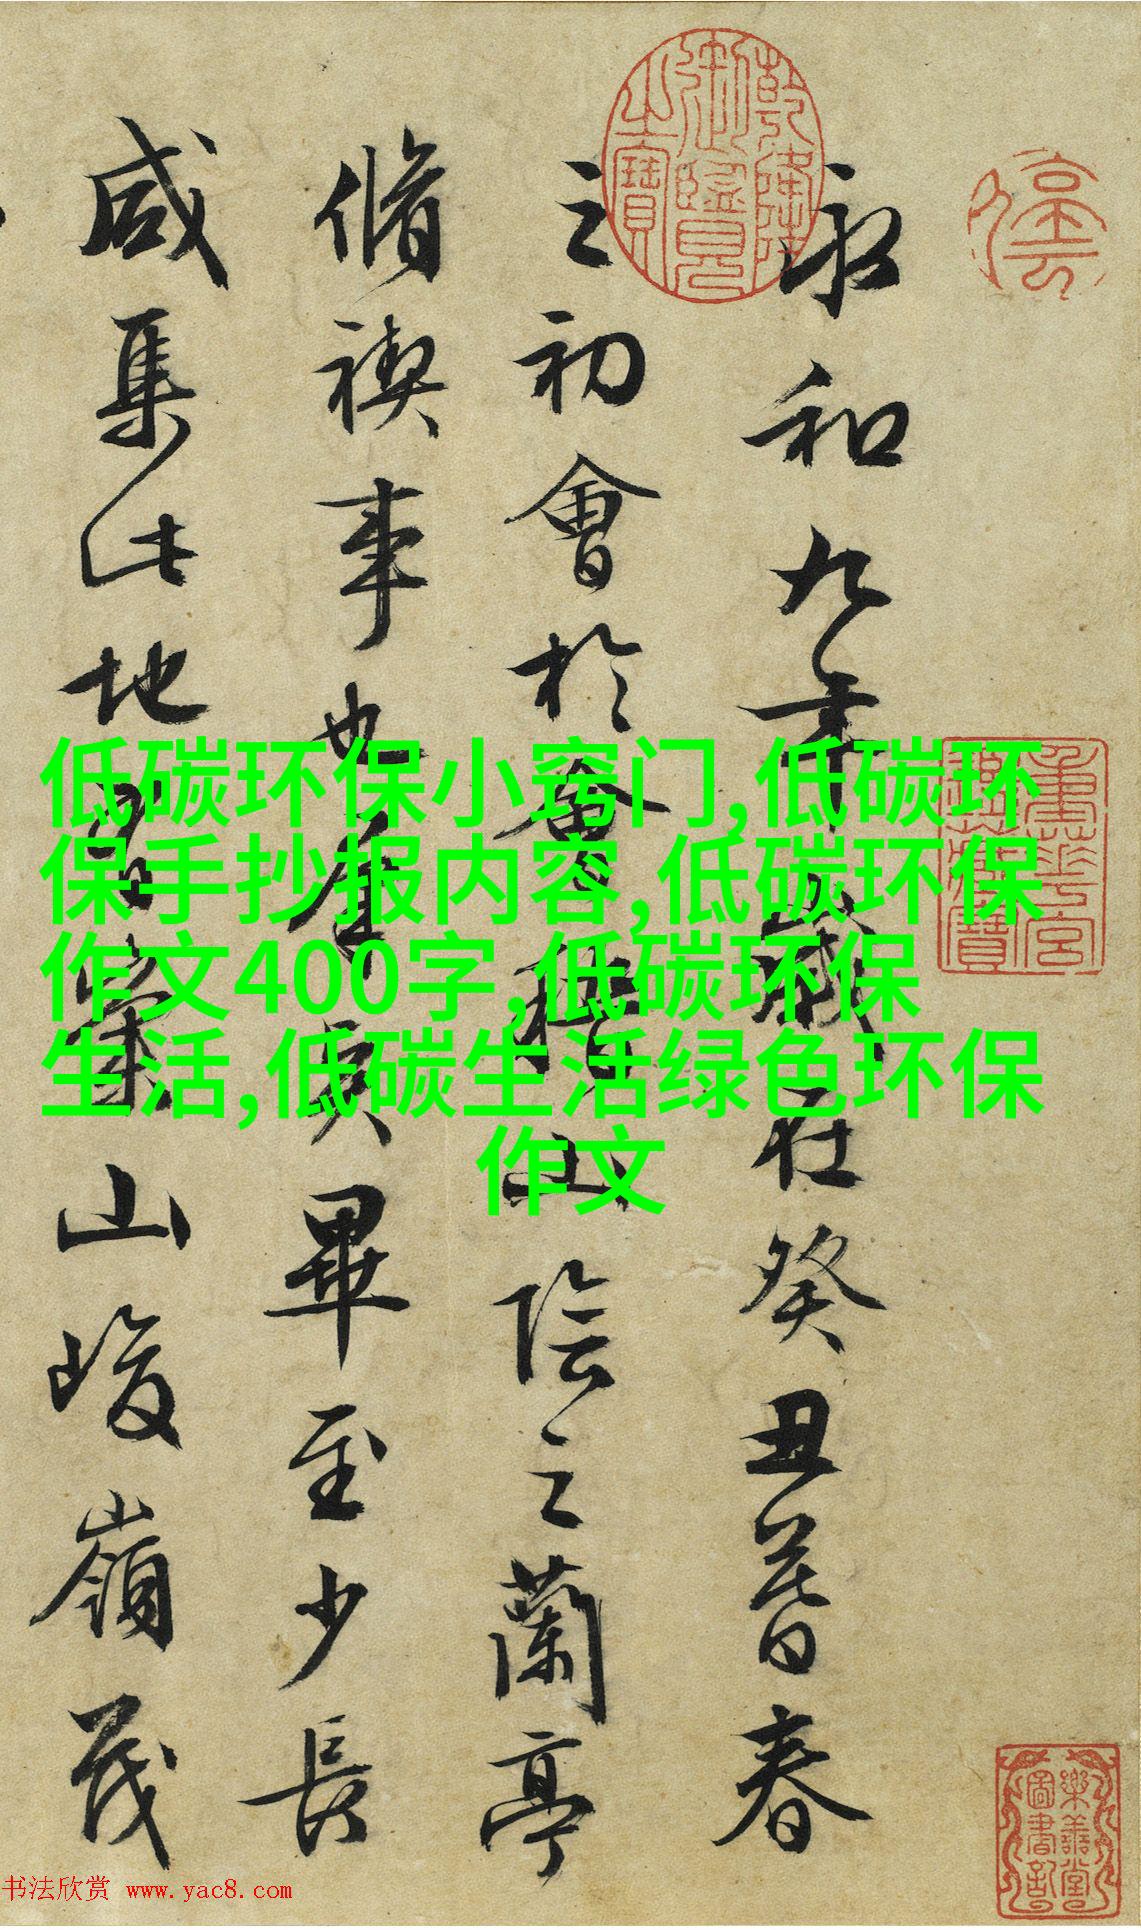 乾隆御覽之寶
永和九年歲在癸丑暮春
之初會於會稽山陰之蘭亭
脩禊事也羣賢畢至少長
咸集此地有崇山峻嶺茂
重華宮鑑藏寶
低碳环保小窍门,低碳环
保手抄报内容,低碳环保
作文400字,低碳环保
生活,低碳生活绿色环保
作文
樂善堂圖書記
书法欣赏 www.yac8.com